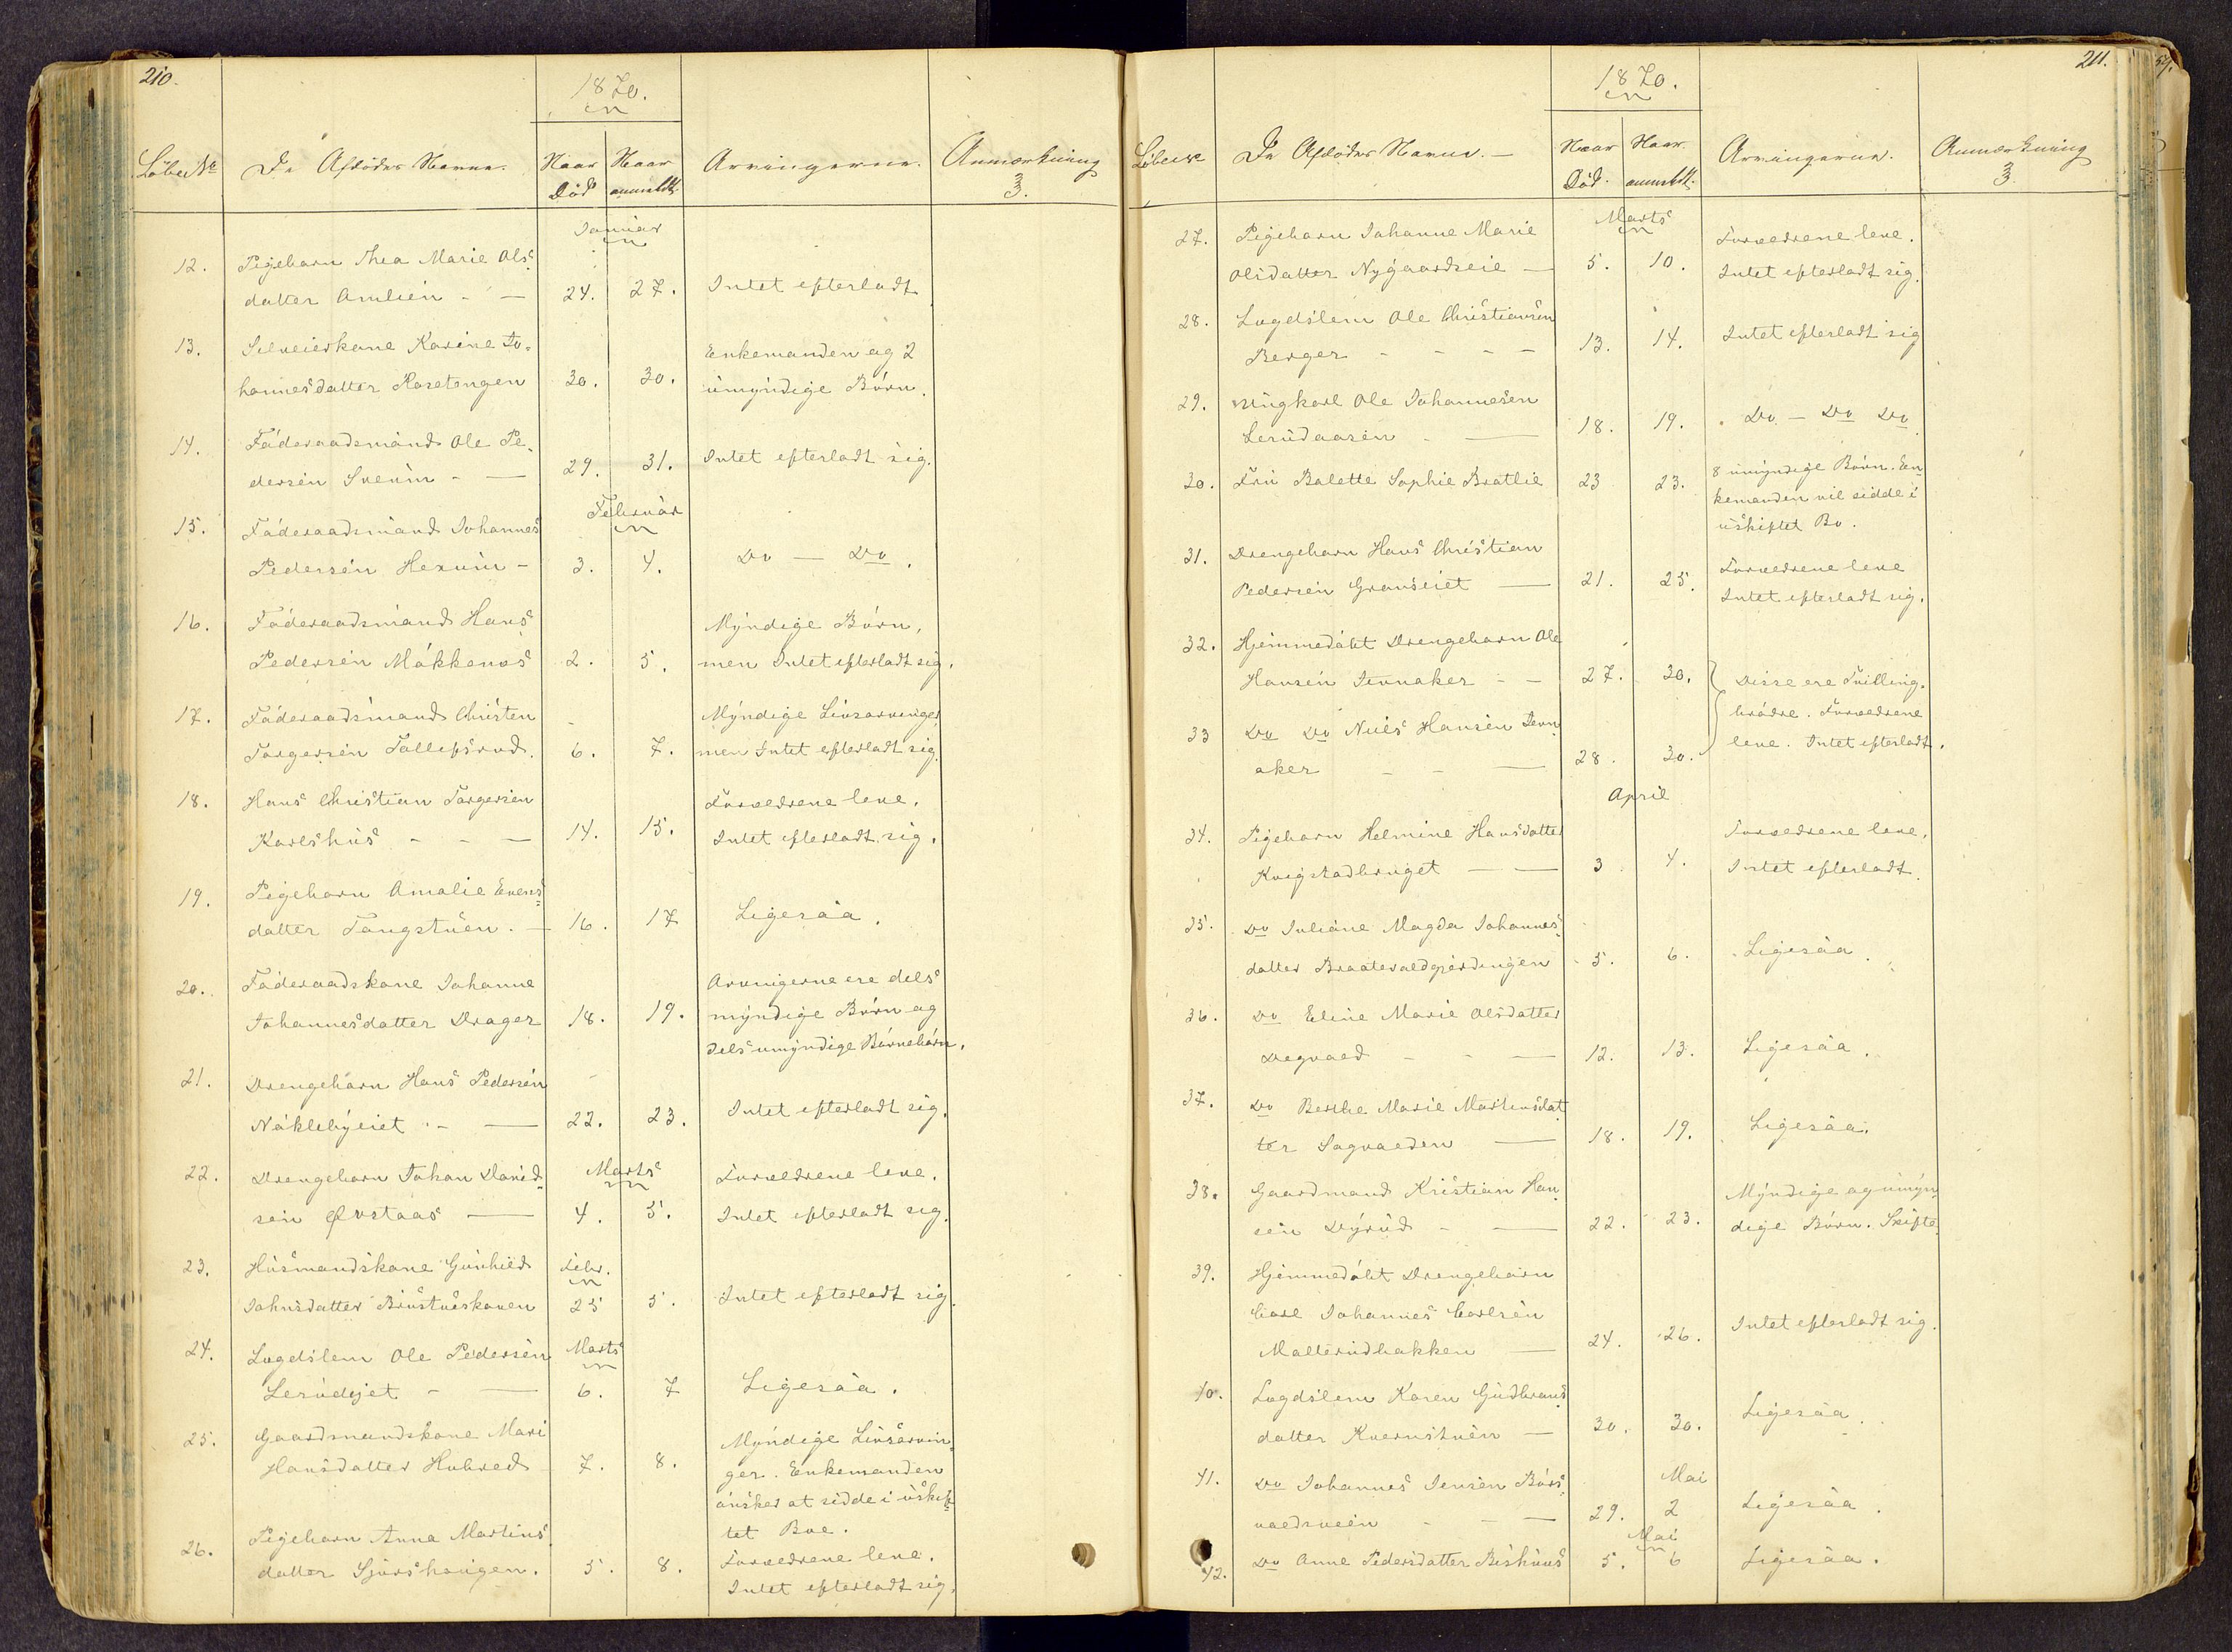 210.
1870.
Löbe№ De Afdødes Navne. Naar Död Naar anmeldt. Arvingerne. Anmærkning 3.
Januar
12. Pigebarn Thea Marie Ols-
datter Amlien - — 24. 27. Intet efterladt
13. Selveierkone Karine Jo-
hannesdatter Haretangen 30. 30. Enkemanden og 2
umyndige Börn.
14. Föderaadsmand Ole Pe-
dersen Sverum - — 29. 31. Intet efterladt sig.
Februar
15. Föderaadsmand Johannes
Pedersen Hexum - 3. 4. Do — Do.
16. Föderaadsmand Hans
Pedersen Mökkenes 2. 5. Myndige Börn,
men Intet efterladt sig.
17. Föderaadsmand Christen
Torgersen Tollefsrud. 6. 7. Myndige Livsarvinger
men Intet efterladt sig.
18. Hans Christian Torgersen
Karlshus - - — 14. 15. Forældrene leve.
Intet efterladt sig.
19. Pigebarn Amalie Evens-
datter Tangstuen. — 16. 17 Ligesaa.
20. Föderaadskone Johanne
Johannesdatter Drager 18. 19. Arvingerne ere dels
myndige Börn og
dels umyndige Börnebörn.
21. Drengebarn Hans Pedersen
Nöklebyeiet - — 22. 23. Intet efterladt sig.
22. Drengebarn Johan David-
sen Øvstaas — Marts 4. 5. Forældrene leve.
Intet efterladt sig.
23. Husmandskone Gunhild Febr.
Johnsdatter 25 5. Intet efterladt sig.
24. Lægdslem Ole Pedersen Marts
Lerudejet - — 6. 7 Ligesaa.
25. Gaardmandskone Mari
Hansdatter Hubred 7. 8. Myndige Livsarvin-
ger. Enkemanden
önsker at sidde i uskif-
tet Boe.
26. Pigebarn Anna Martins-
datter Sjurshaugen. 5. 8. Forældrene leve.
Intet efterladt sig.
211.
1870.
Löbe№ De Afdødes Navne. — Naar Död. Naar anmeldt. Arvingerne. Anmærkning 3
Marts
27. Pigebarn Johanne Marie
Olsdatter Nygaardseie — 5. 10. Forældrene leve.
Intet efterladt sig.
28. Lægdslem Ole Christiansen
Berger - - - — 13. 14. Intet efterladt sig
29. Ungkarl Ole Johannesen
Lerudaasen - — 18. 19. Do — Do Do
30. Fru Balette Sophie Bratlie 23 23. 8 umyndige Börn. En-
kemanden vil sidde i
uskiftet Bo.
31. Drengebarn Hans Christian
Pedersen Granseiet — 21. 25. Forældrene leve
Intet efterladt sig.
32. Hjemmedöbt Drengebarn Ole
Hansen Jevnaker - — 27. 30. Disse ere Tvilling-
brödre. Forældrene
leve. Intet efterladt.
33 Do Do Niels Hansen Jevn-
aker - - — 28. 30.
April
34. Pigebarn Helmine Hansdatter
Kvigstadbruget — — 3 4. Forældrene leve.
Intet efterladt.
35. Do Juliane Magda Johannes-
datter 5. 6. Ligesaa.
36. Do Eline Marie Olsdatter
Degvold - - — 12. 13. Ligesaa.
37. Do Berthe Marie Martinsdat-
ter Sagvolden — 18. 19. Ligesaa.
38. Gaardmand Kristian Han-
sen Dyrud - — 22. 23. Myndige og umyn-
dige Börn. Skifte.
39. Hjemmedöbt Drengebarn
Carl Johannes Carlsen
Mallerudbakken — 24. 26. Intet efterladt sig.
40. Lægdslem Karen Gudbrands-
datter Kvernstuen — 30. 30. Ligesaa.
Mai
41. Do Johannes Jensen Börs-
voldsveien - - — 29. 2 Ligesaa.
Mai
42. Do Anne Pedersdatter Bishuus 5. 6 Ligesaa.